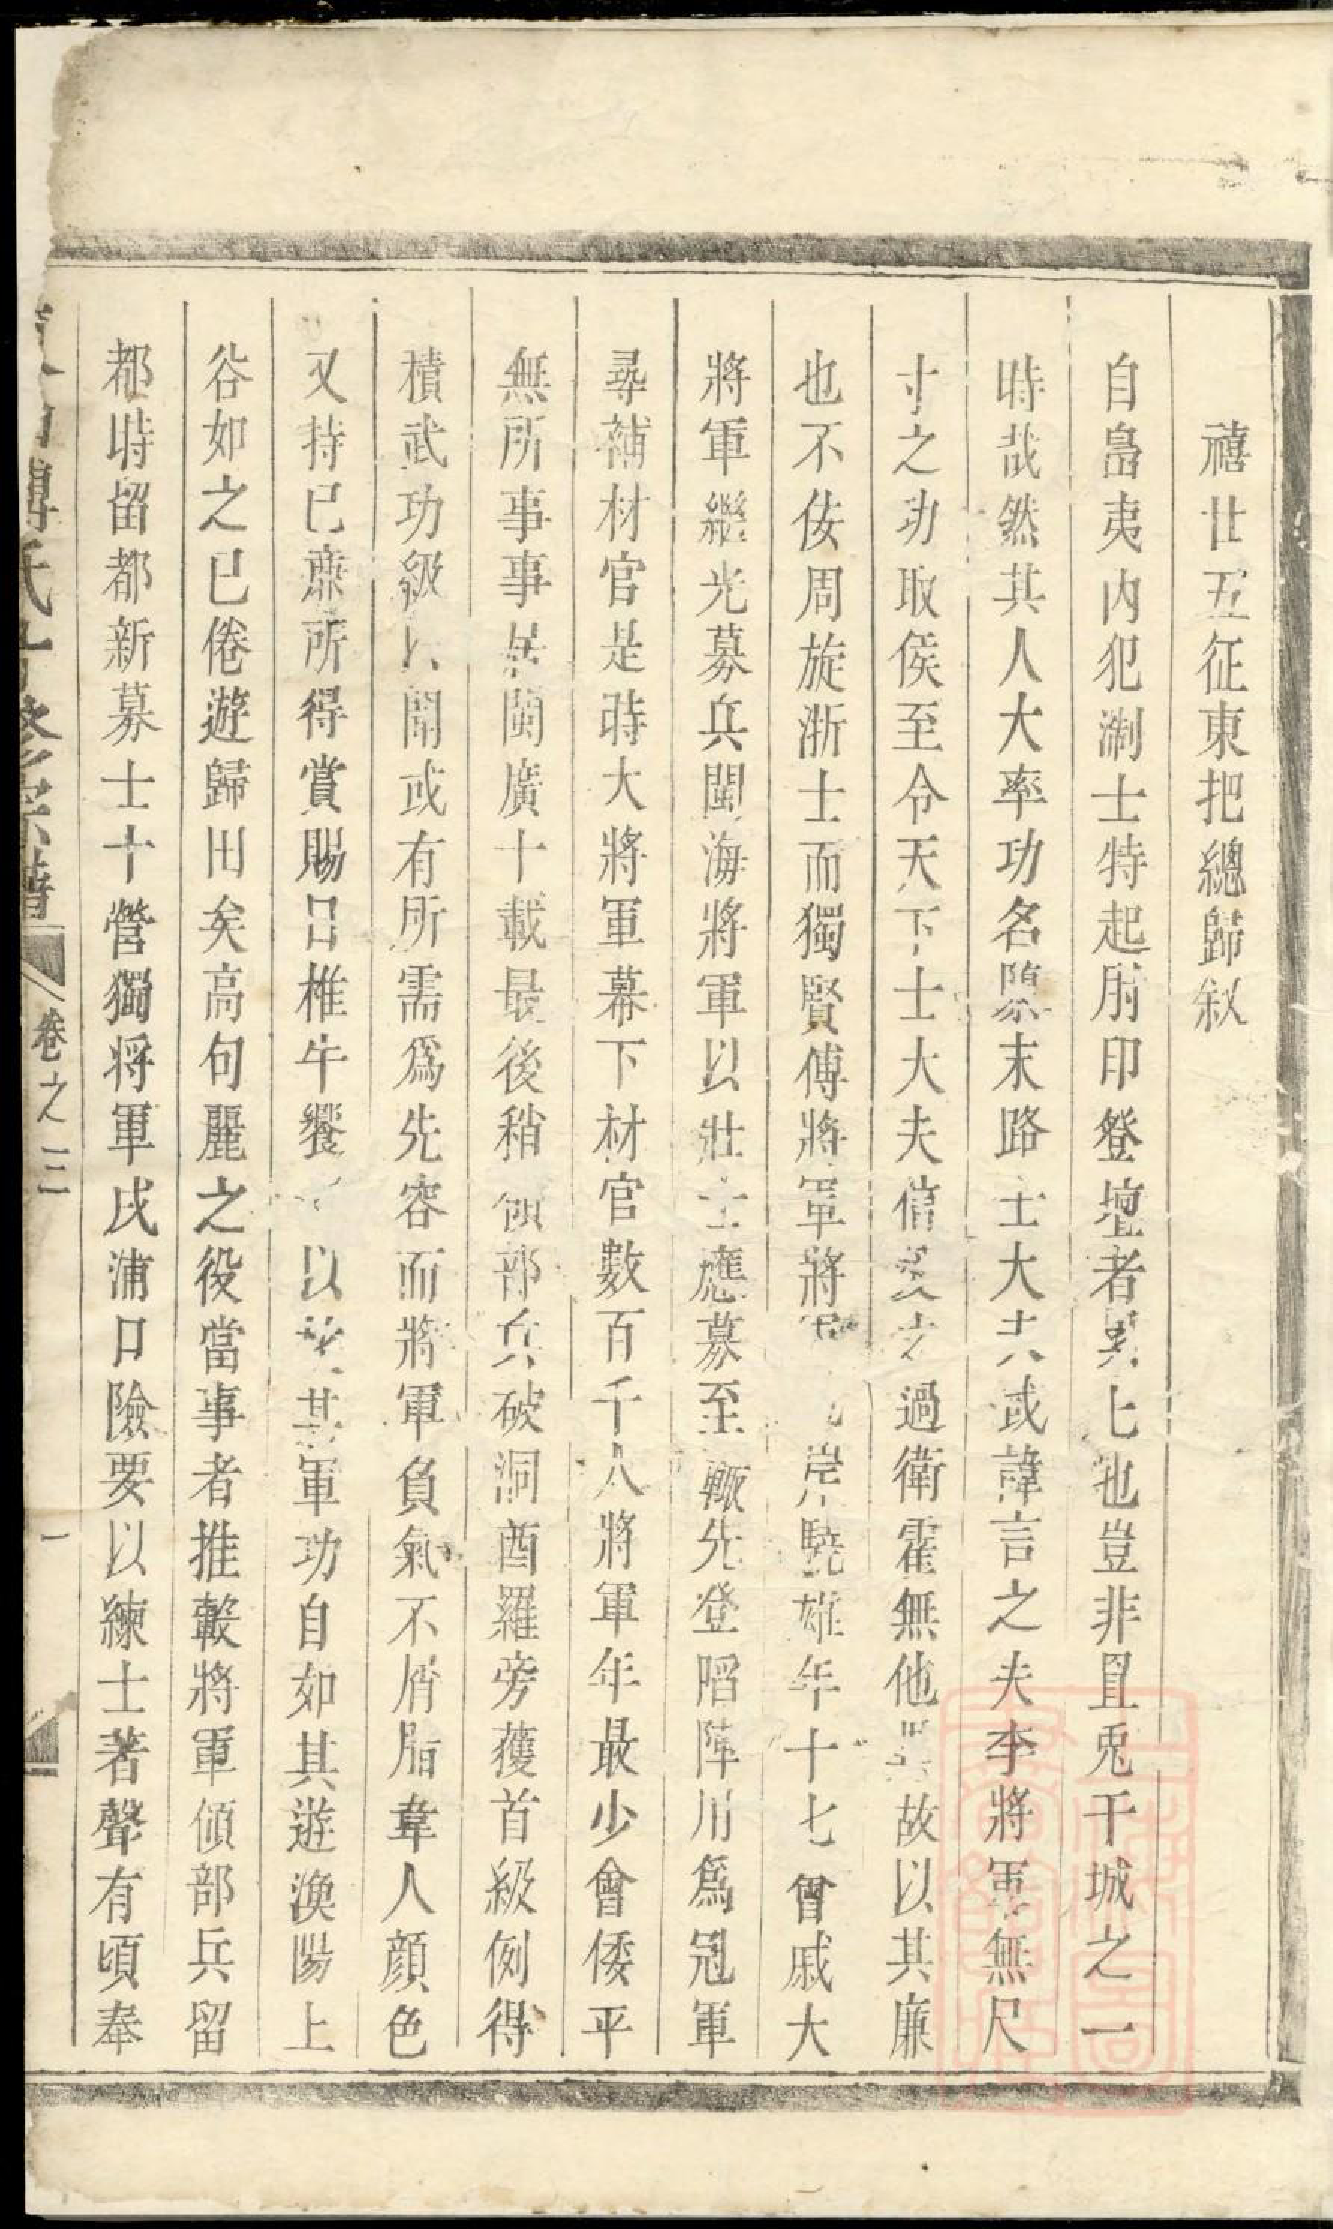 禧廿五征東把總歸叙
自島夷内犯淛士特起肘印登壇者異七也豈非罝兎干城之一
時哉然其人大率功名隳末路士大夫或諱言之夫李將軍無尺
寸之功取侯至令天下士大夫信慕之過衛霍無他異故以其廉
也不佞周旋浙士而獨賢傅將軍將軍岸驍雄年十七會戚大
將軍繼光募兵閩海將軍以壯士應募至輙先登陷陣川爲冠軍
尋補材官是時大將軍幕下材官數百千人將軍年最少會倭平
無所事事居閩廣十載最後稍領部兵破洞酋羅旁獲首級例得
積武功級聞或有所需爲先容而將軍負氣不屑脂韋人顔色
又持已廉所得賞賜日椎牛饗以其軍功自如其遊漁陽上
谷如之已倦遊歸田矣高句麗之役當事者推轂將軍傾部兵留
都時留都新募士十營獨将軍戍浦口險要以練士著聲有頃奉
傅氏修宗譜 卷之三 一